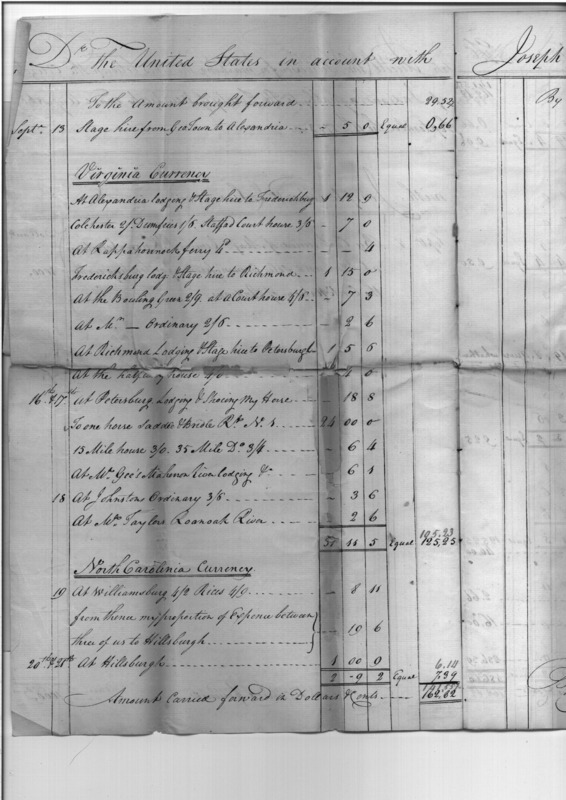 Dr. The United States in account with Joseph
To the Amount brought forward 29.52 By
Septr. 13 Stage hire from GeoTown to Alexandria - 5 0 Equal 0,66
Virginia Currency
At Alexandria lodging & Stage hire to Frederickburg 1 12 9
Colchester 2/ Dumfries 1/6 Staffad Court house 3/6 - 7 0
At Rappahonnock ferry 4d - - 4
Fredericksburg lodg. & Stage hire to Richmond 1 15 0
At the Bowling Green 2/9. at a Court house 4/6 - 7 3
At Mrs — Ordinary 2/6 2 6
At Richmond Lodging & Stage hire to Petersburgh 1 5 6
At the halfway house 4/0 - 4 0
16th & 17th at Petersburg Lodging & Shoeing My Horse - 18 8
To one horse Saddle & Bridle Rt. No. 1 24 00 0
15 Mile house 3/0. 35 Mile Do. 3/4 - 6 4
At Mr. Gee's lodging &c - 6 1
18 At Johnstons Ordinary 3/6 - 3 6
At Mrs Taylors Roanoak River 2 6
11 5 Equal 125,25
North Carolinia Currency
19 At Williamsburg 4/2 Rices 4/9 - 8 11
from thence my proportion of Expence between
three of us to Hillsburgh - 19 6
20th & 21st At Hillsburgh 1 00 0 6.14
2 -9 2 Equal 7.39
Amount Carried forward in Dollars & Cents 162.82